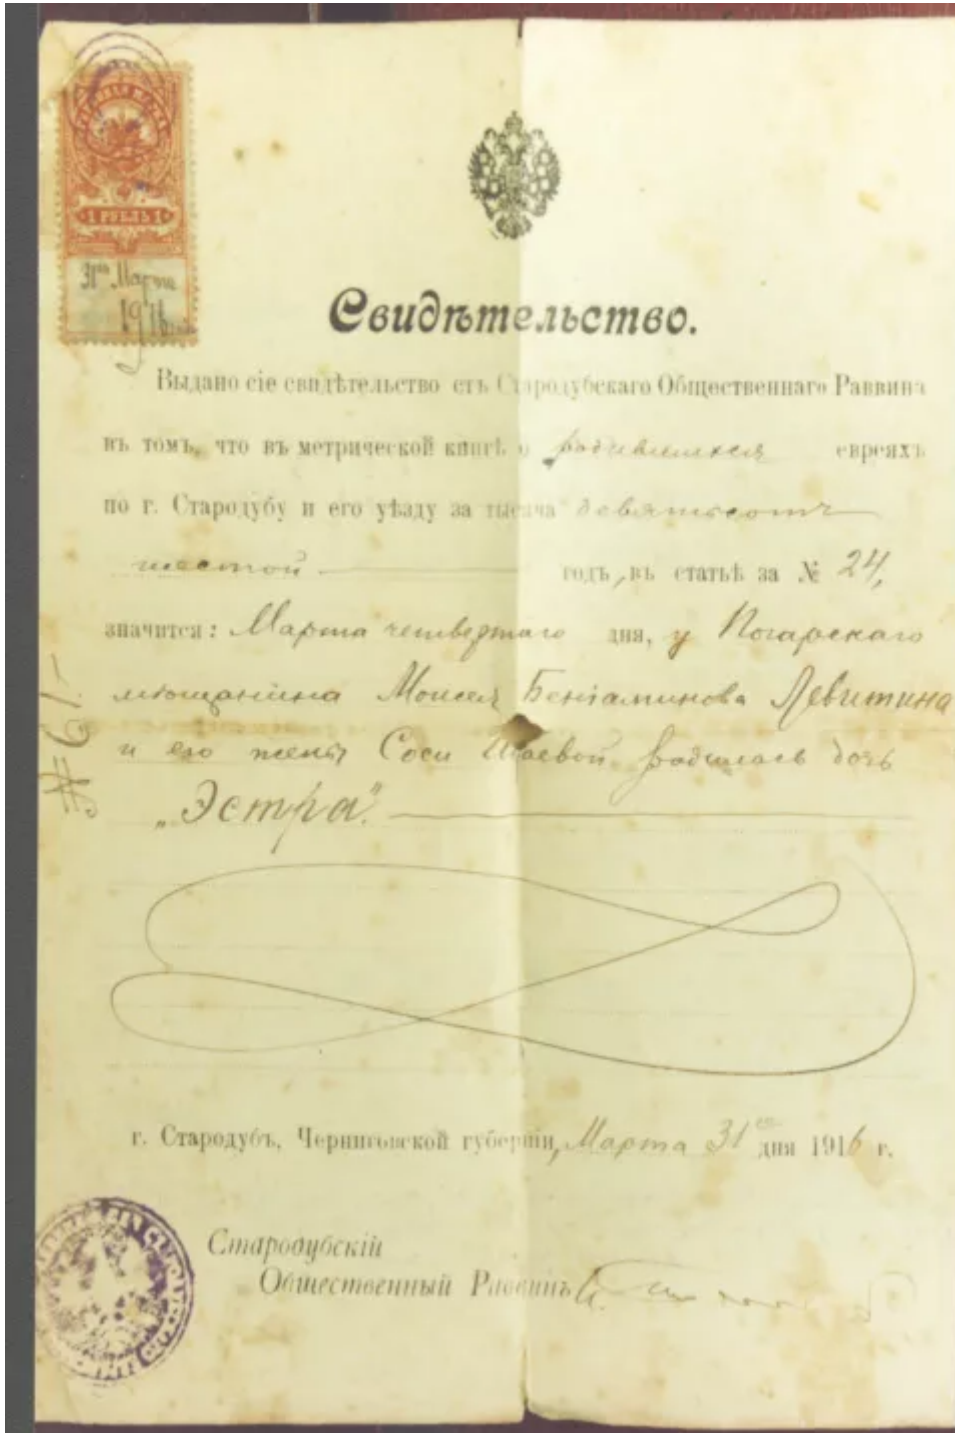 1 РУБЛЬ 1
31го Марта
1916
Свидѣтельство.
Выдано сіе свидѣтельство отъ Стародубскаго Общественнаго Раввина
въ томъ, что въ метрической книгѣ о родившихся евреяхъ
по г. Стародубу и его уѣзду за тысяча девятьсотъ
шестой годъ, въ статьѣ за № 24,
значится: Марта четвертаго дня, у Погарскаго
мѣщанина Моисея Беніаминова Левитина
и его жены Соси родилась дочь
„Эстра".
г. Стародубъ, Черниговской губерніи, Марта 31го дня 1916 г.
Стародубскій
Общественный Раввинъ